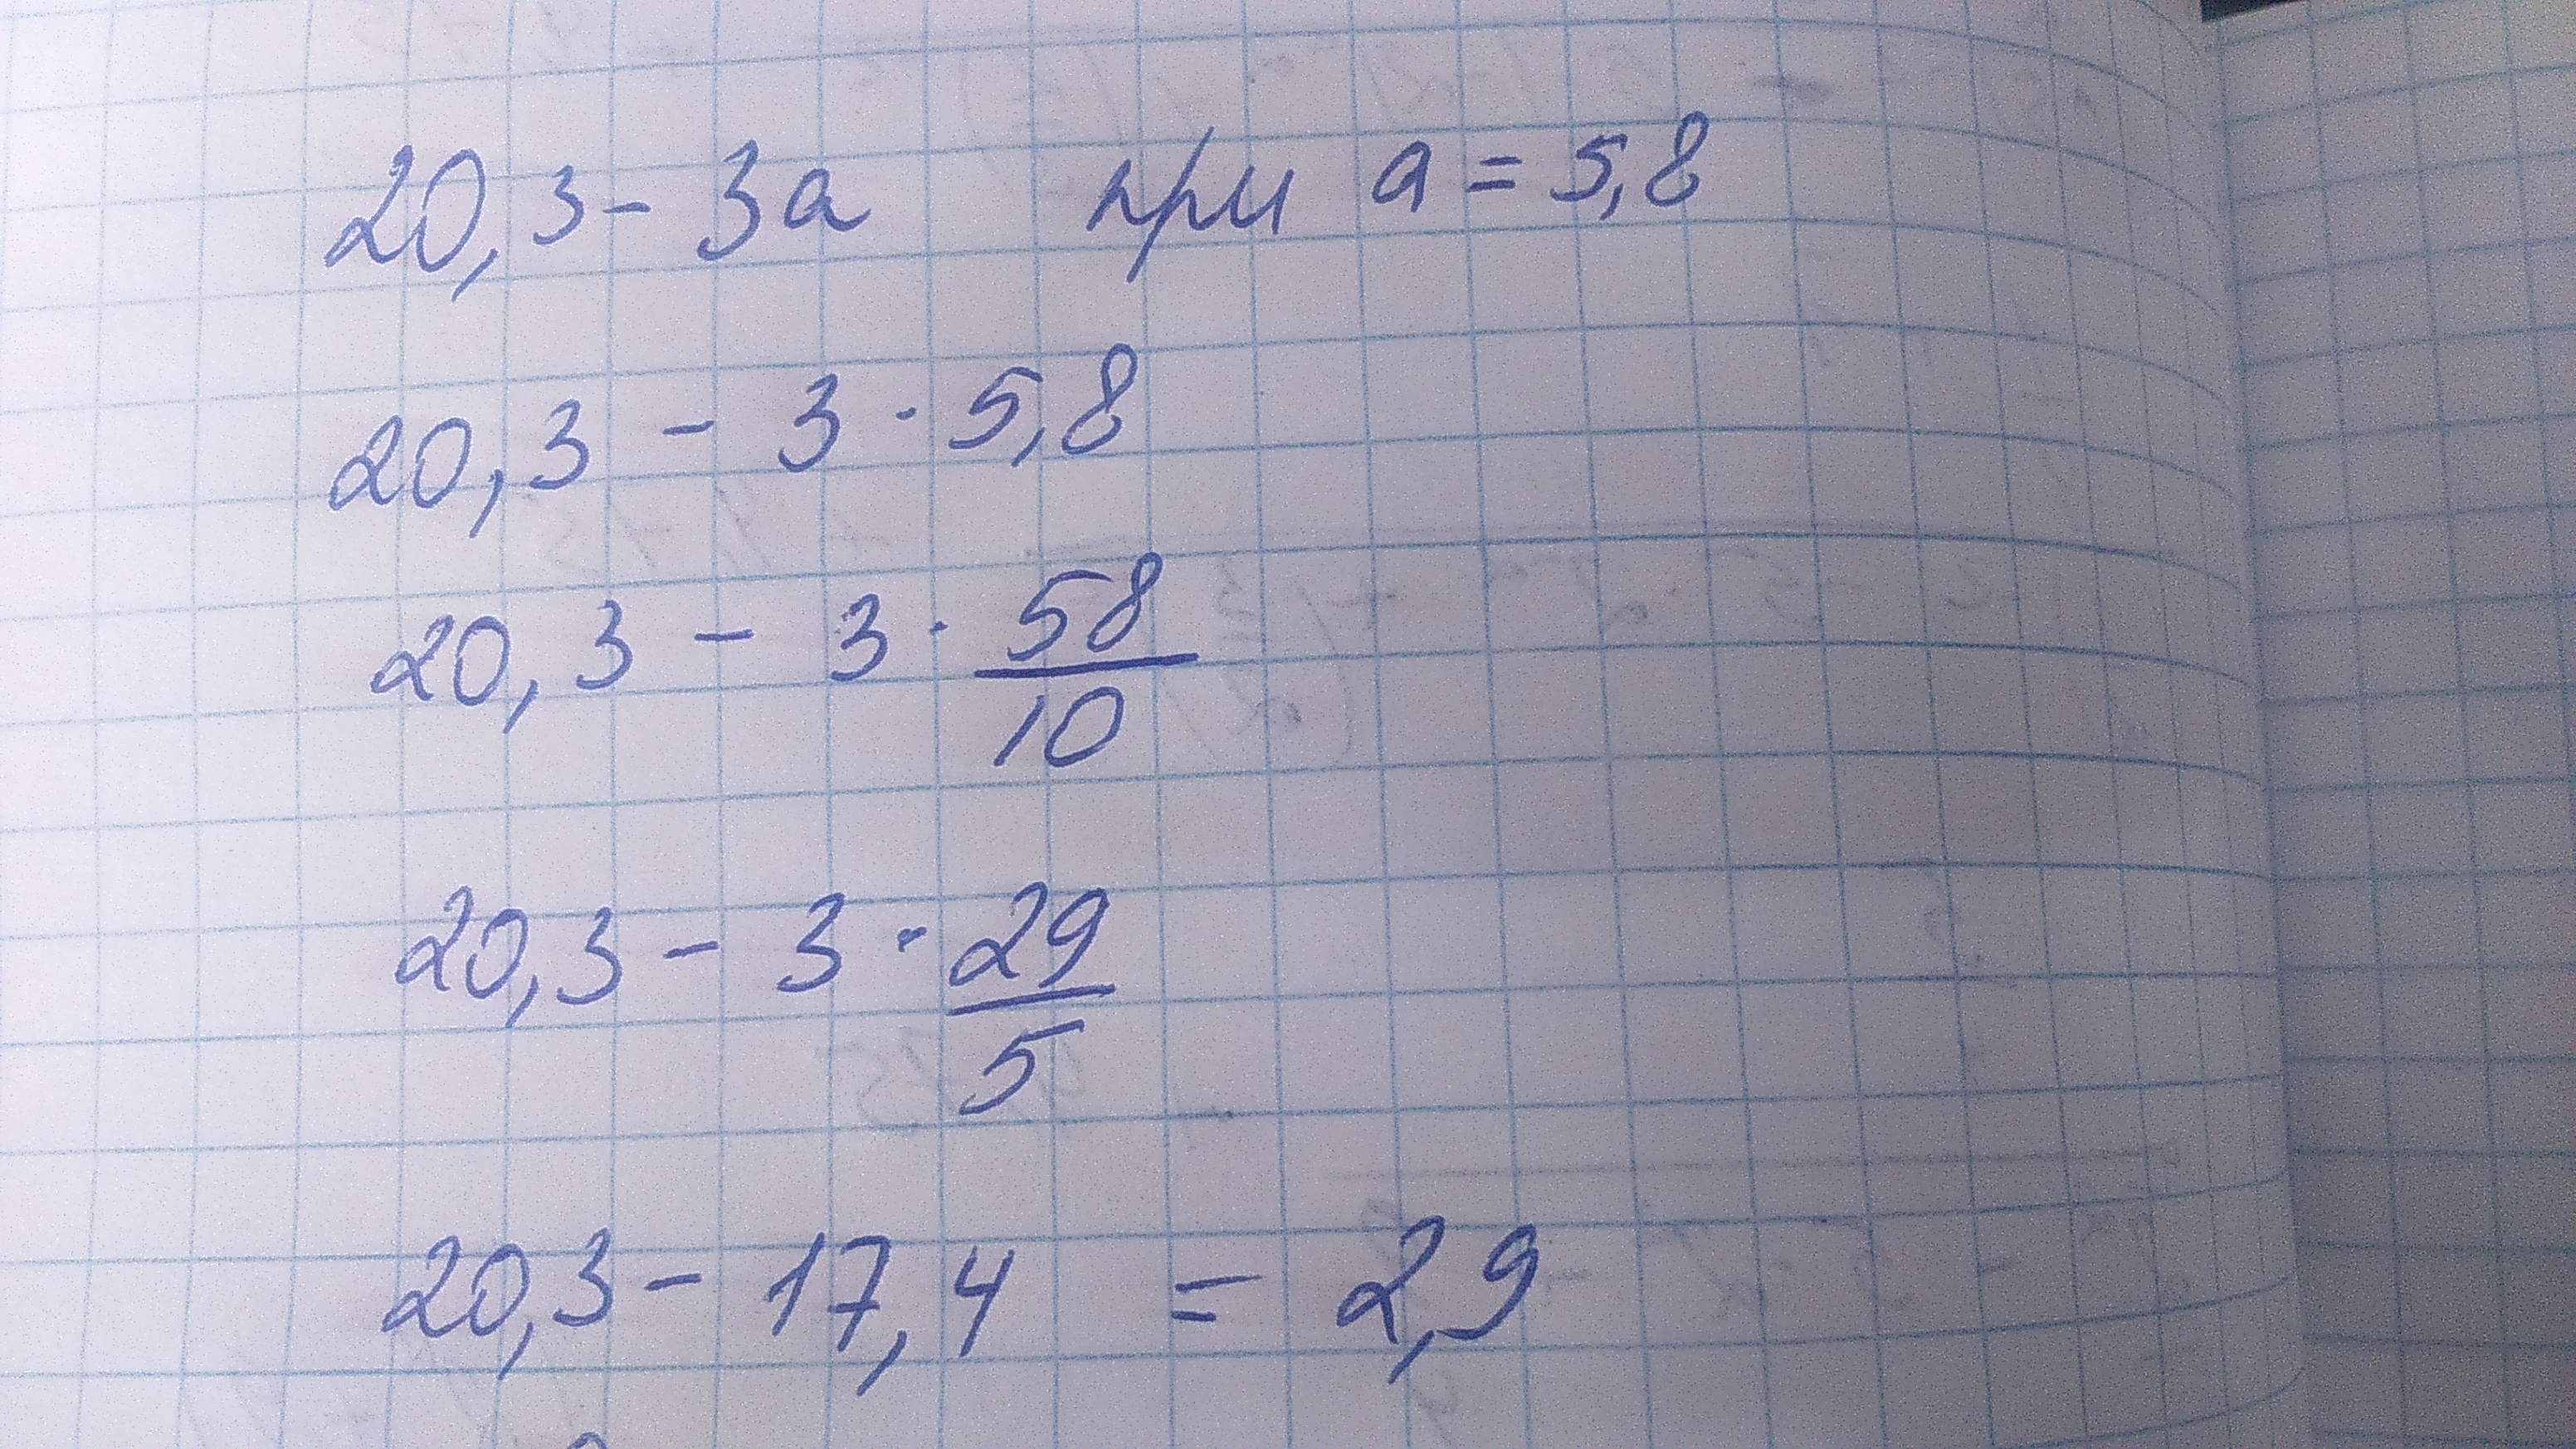 20,3 - 3a при a = 5,8
20,3 - 3 · 5,8
20,3 - 3 · 58/10
20,3 - 3 · 29/5
20,3 - 17,4 = 2,9